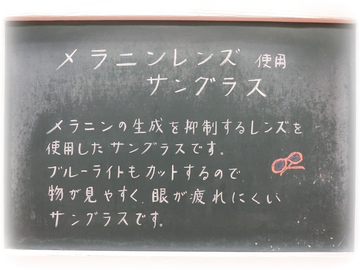 メラニンレンズ 使用
サングラス
メラニンの生成を抑制するレンズを
使用したサングラスです.
ブルーライトもカットするので
物が見やすく.眼が疲れにくい
サングラスです.